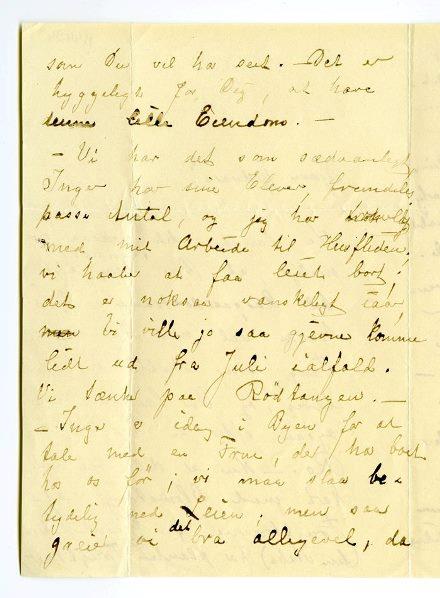 som Du vil ha seet. – Det er
hyggeligt for Dig, at have
denne lille Eiendom. –
– Vi har det som sædvanligt,
Inger har sine Elever, fremdeles
passe Antal, og jeg har
med mit Arbeide til Husfliden;
vi haaber at faa leiet bort!
det er noksaa vanskeligt iaar,
men Vi ville jo saa gjerne komme
lidt ud fra Juli ialfald.
Vi tænke paa Rødtangen. –
– Inger er idag i Byen for at
tale med en Frue, der har boet
hos os før; vi maa slaa be-
tydelig ned Leien; men saa
greier vi det bra alligevel, da